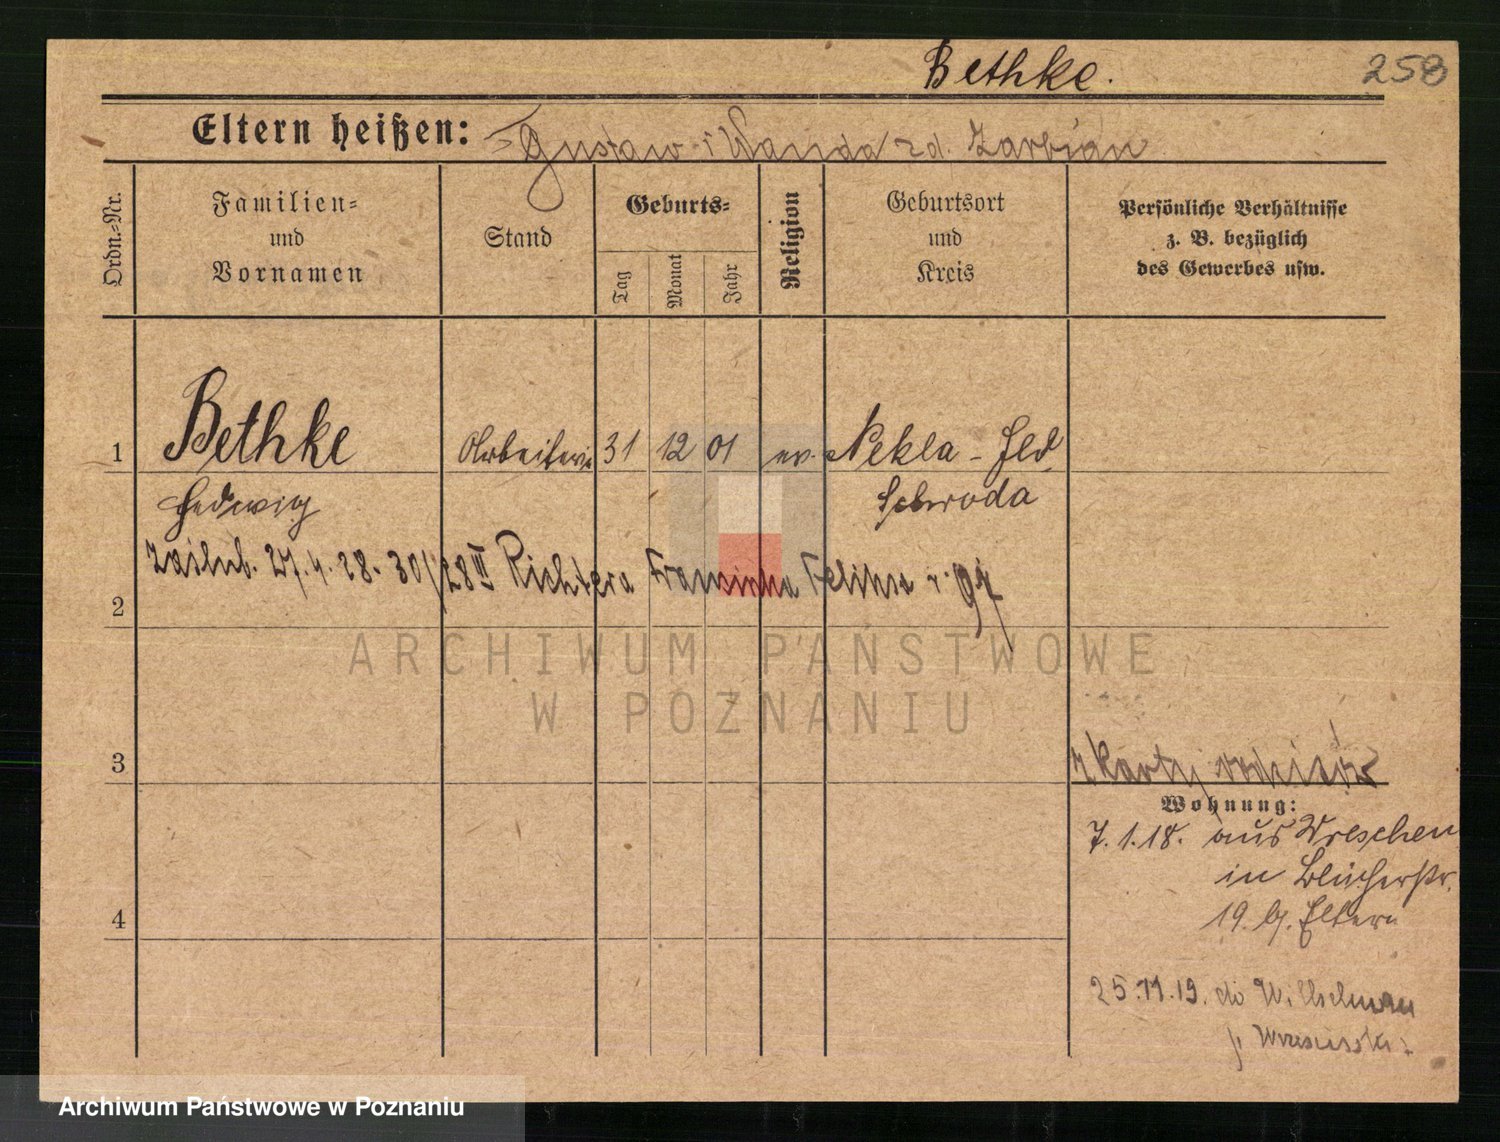 Bethke.
258
Eltern heißen: Gustaw i Wanda zd. Zarbian
Ordn.-Nr.
Familien-
und
Vornamen
Stand
Geburts-
Tag
Monat
Jahr
Religion
Geburtsort
und
Kreis
Persönliche Verhältnisse
z. B. bezüglich
des Gewerbes usw.
1 Bethke Arbeiterin 31 12 01 ev. Nekla - Hld
Hedwig Schroda
Zaślub. 27.4.28. 30/28 III Richtera Franciszka Feliksa r. 97
2
ARCHIWUM PAŃSTWOWE
W POZNANIU
3
z karty rodziców
Wohnung:
7.1.18. aus Wreschen
in Blücherstr.
19 b/. Eltern
4
25.11.19. do Wilhelmau
p. Wrzesiński
Archiwum Państwowe w Poznaniu